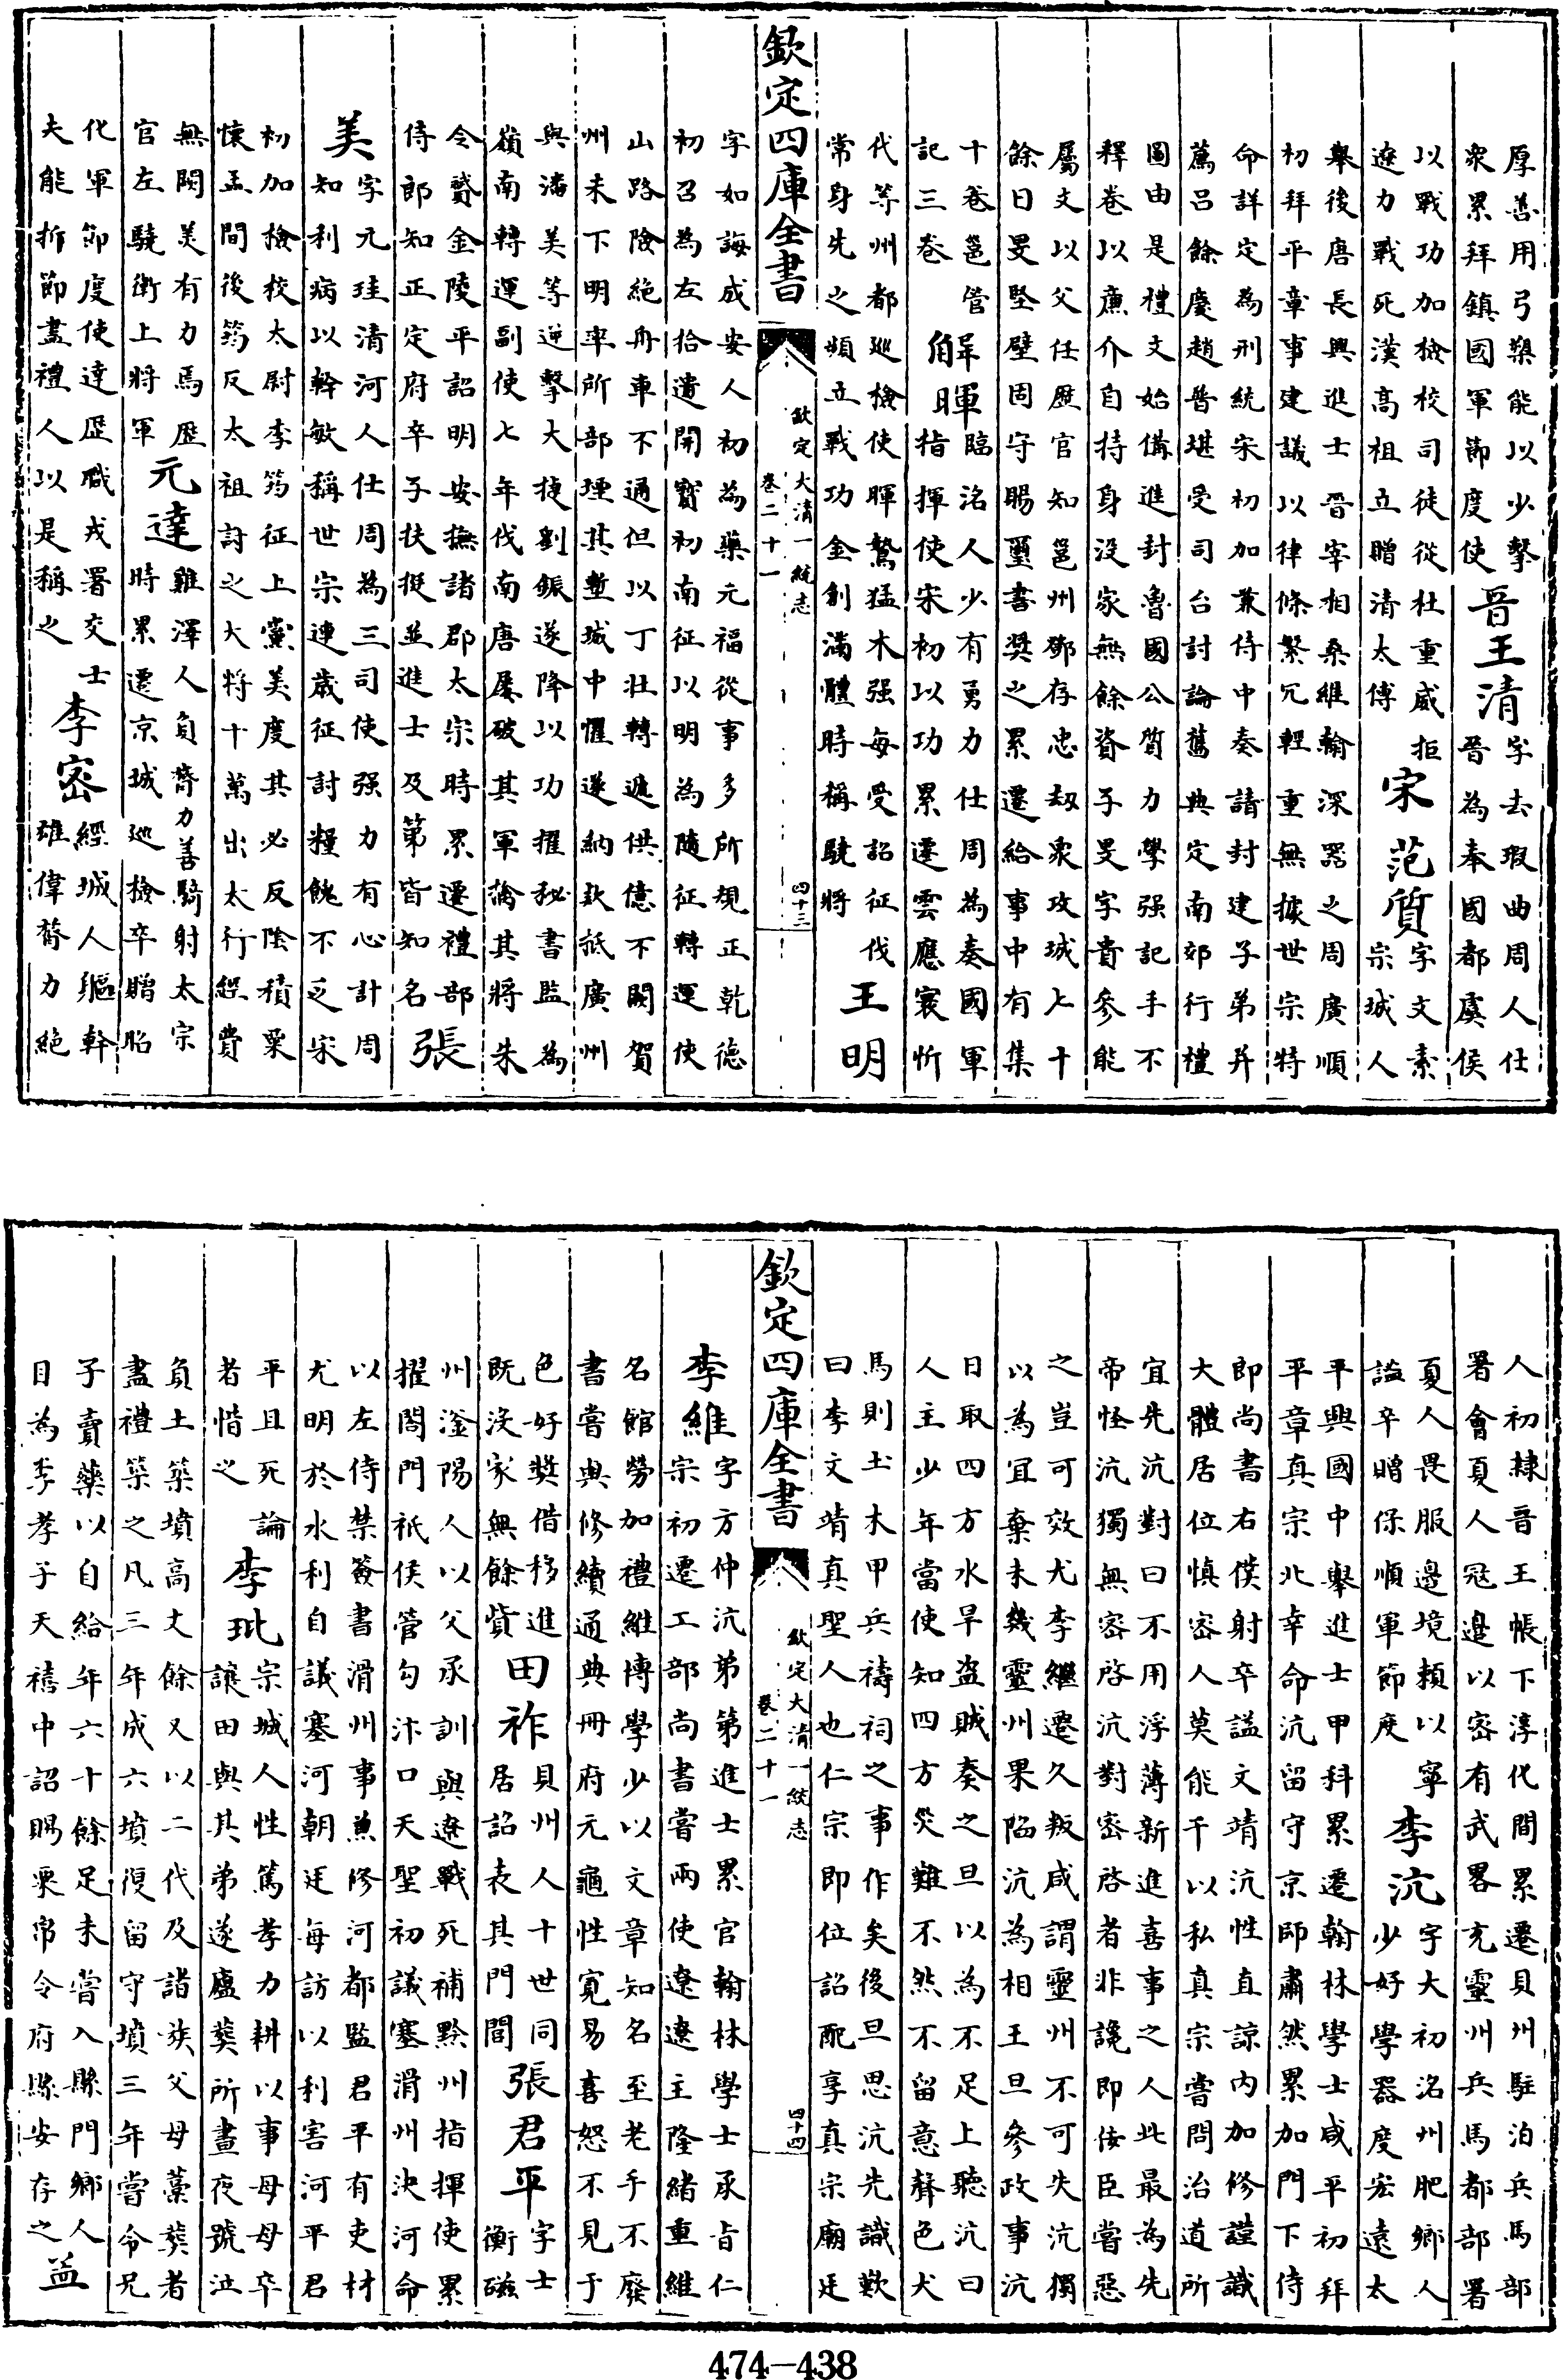 厚善用弓槊能以少擊
衆累拜鎮國軍節度使
晉王清
字去瑕曲周人仕
晉為奉國都虞侯
以戰功加檢校司徒從杜重威拒
遼力戰死漢高祖立贈清太傅
宋 范質
字文素
宗城人
舉後唐長興進士晉宰相桑維翰深器之周廣順
初拜平章事建議以律條繁冗輕重無據世宗特
命詳定為刑統宋初加兼侍中奏請封建子弟并
薦呂餘慶趙普堪受司台討論舊典定南郊行禮
圖由是禮文始備進封魯國公質力學强記手不
釋卷以廉介自持身没家無餘資子旻字貴參能
屬文以父任歴官知邕州鄧存忠刼衆攻城七十
餘日旻堅壁固守賜璽書奬之累遷給事中有集
十卷邕管
記三卷
解暉
臨洺人少有勇力仕周為奏國軍
指揮使宋初以功累遷雲應寰忻
代等州都廵檢使暉鷙猛木强每受詔征伐
常身先之頻立戰功金創滿體時稱驍將
王明
欽定四庫全書
欽定大清一統志
卷二十一
四十三
字如誨成安人初為藥元福從事多所規正乾德
初召為左拾遺開寳初南征以明為隨征轉運使
山路險絶舟車不通但以丁壯轉遞供億不闕賀
州未下明率所部堙其塹城中懼遂納欵抵廣州
與潘美等逆擊大捷劉鋹遂降以功擢秘書監為
嶺南轉運副使七年伐南唐屢破其軍擒其將朱
令贇金陵平詔明安撫諸郡太宗時累遷禮部
侍郎知正定府卒子扶挺並進士及第皆知名
張
美
字元珪清河人仕周為三司使强力有心計周
知利病以幹敏稱世宗連歲征討糧餽不乏宋
初加檢校太尉李筠征上黨美度其必反隂積粟
懷孟間後筠反太祖討之大將十萬出太行經費
無闕美有力馬歴
官左驍衛上將軍
元達
雞澤人負膂力善騎射太宗
時累遷京城廵檢卒贈昭
化軍節度使達歴職戎署交士
夫能折節盡禮人以是稱之
李密
經城人軀幹
雄偉膂力絶
人初隸晉王帳下淳化間累遷貝州駐泊兵馬部
署會夏人冦邉以密有武畧充靈州兵馬都部署
夏人畏服邉境頼以寧
諡卒贈保順軍節度
李沆
字大初洺州肥鄉人
少好學器度宏遠太
平興國中舉進士甲科累遷翰林學士咸平初拜
平章真宗北幸命沆留守京師肅然累加門下侍
即尚書右僕射卒諡文靖沆性直諒内加修謹識
大體居位慎密人莫能干以私真宗嘗問治道所
宜先沆對曰不用浮薄新進喜事之人此最為先
帝怪沆獨無密啓沆對密啓者非讒即佞臣嘗惡
之豈可效尤李繼遷久叛咸謂靈州不可失沆獨
以為宜棄未幾靈州果陷沆為相王旦參政事沆
日取四方水旱盗賊奏之旦以為不足上聽沆曰
人主少年當使知四方災難不然不留意聲色犬
馬則土木甲兵禱祠之事作矣後旦思沆先識歎
曰李文靖真聖人也仁宗即位詔配享真宗廟廷
欽定四庫全書
欽定大清一統志
卷二十一
四十四
李維
字方仲沆弟第進士累官翰林學士承旨仁
宗初遷工部尚書嘗兩使遼遼主隆緒重維
名館勞加禮維博學少以文章知名至老手不廢
書嘗與修續通典冊府元龜性寛易喜怒不見于
色好奬借移進
既没家無餘貲
田祚
貝州人十世同
居詔表其門閭
張君平
字士
衡磁
州滏陽人以父承訓與遼戰死補黔州指揮使累
擢閤門祗侯管勾汴口天聖初議塞滑州決河命
以左侍禁簽書滑州事兼修河都監君平有吏材
尤明於水利自議塞河朝廷每訪以利害河平君
平且死論
者惜之
李玭
宗城人性篤孝力耕以事母母卒
讓田與其弟遂廬葬所晝夜號泣
負土築墳高丈餘又以二代及諸族父母藁葬者
盡禮築之凡三年成六墳復留守墳三年嘗令兄
子賣藥以自給年六十餘足未嘗入縣門鄉人
目為李孝子天禧中詔賜粟帛令府縣安存之
益
474—438